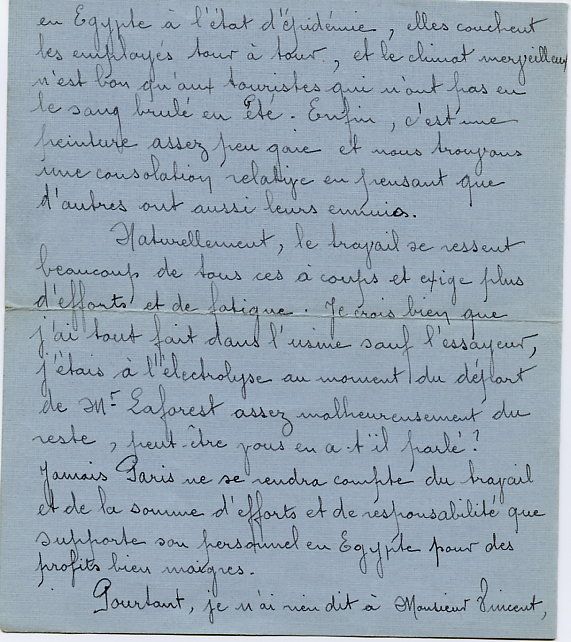 en Egypte à l'état d'épidémie, elles couchent
les employés tour à tour, et le climat merveilleux
n'est bon qu'aux touristes qui n'ont pas eu
le sang brulé en été. Enfin, c'est une
peinture assez peu gaie et nous trouvons
une consolation relative en pensant que
d'autres ont aussi leurs ennuis.
Naturellement, le travail se ressent
beaucoup de tous ces à coups et exige plus
d'efforts et de fatigue. Je crois bien que
j'ai tout fait dans l'usine sauf l'essayeur,
j'étais à l'électrolyse au moment du départ
de Mr Laforest assez malheureusement du
reste, peut-être vous en a-t'il parlé?
Jamais Paris ne se rendra compte du travail
et de la somme d'efforts et de responsabilité que
supporte son personnel en Egypte pour des
profits bien maigres.
Pourtant, je n'ai rien dit à Monsieur Vincent,